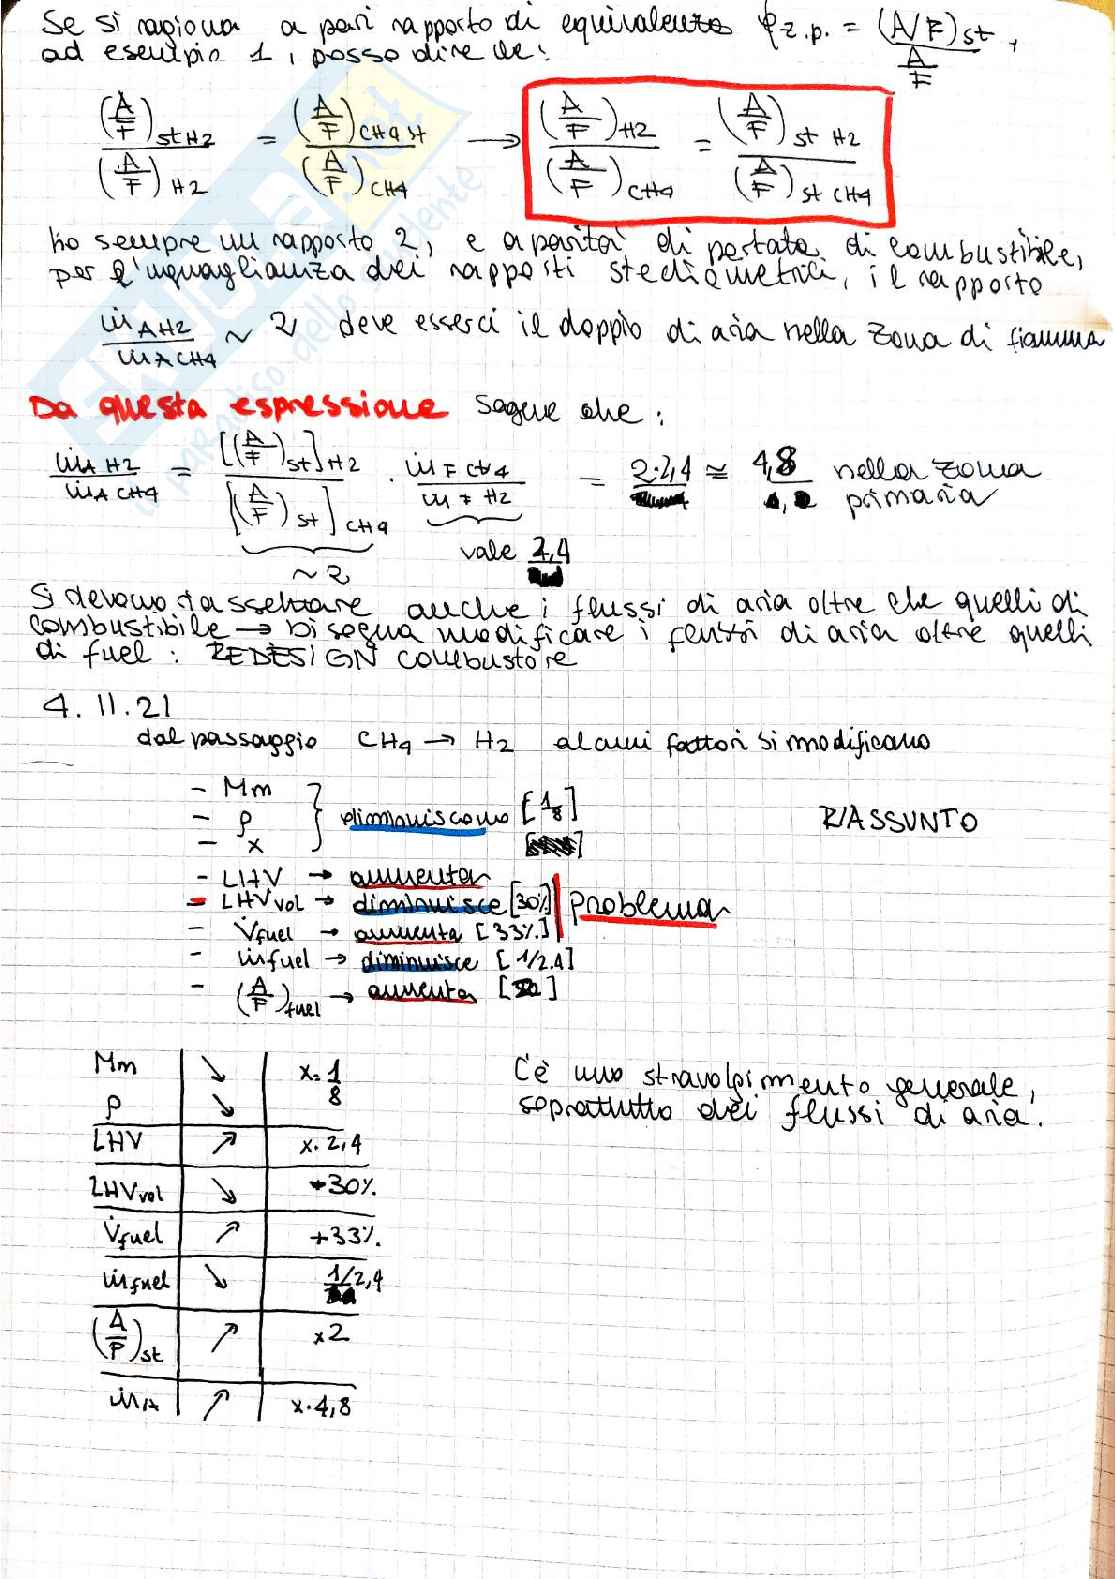 Se si ragiona a pari rapporto di equivalenza φz.p. = (A/F)st / (A/F) ,
ad esempio 1, posso dire che:
(A/F)st H2 / (A/F)H2 = (A/F)CH4 st / (A/F)CH4 → (A/F)H2 / (A/F)CH4 = (A/F)st H2 / (A/F)st CH4
ho sempre un rapporto 2, e a parità di portata di combustibile,
per l'uguaglianza dei rapporti stechiometrici, il rapporto
ṁA H2 / ṁA CH4 ~ 2 deve esserci il doppio di aria nella zona di fiamma
Da questa espressione segue che:
ṁA H2 / ṁA CH4 = [(A/F)st]H2 / [(A/F)st]CH4 · ṁF CH4 / ṁF H2 = 2·2,4 ≅ 4,8 nella zona
primaria
vale 2,4
~ 2
Si devono riassettare anche i flussi di aria oltre che quelli di
combustibile → bisogna modificare i fori di aria oltre quelli
di fuel: REDESIGN combustore
4.11.21
dal passaggio CH4 → H2 alcuni fattori si modificano
- Mm
- ρ } diminuiscono [1/8]
- x
RIASSUNTO
- LHV → aumenta
- LHVvol → diminuisce [30%] Problema
- V̇fuel → aumenta [33%]
- ṁfuel → diminuisce [1/2.4]
- (A/F)fuel → aumenta [2]
Mm ↘ x · 1/8
ρ ↘
LHV ↗ x · 2,4
LHVvol ↘ -30%
V̇fuel ↗ +33%
ṁfuel ↘ 1/2,4
(A/F)st ↗ x2
ṁA ↗ x · 4,8
C'è uno stravolgimento generale,
soprattutto dei flussi di aria.